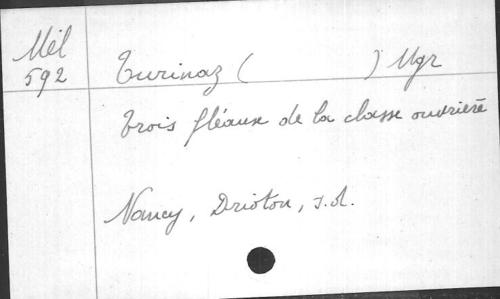 Mél
592
Turinaz ( ) Mgr
Trois fléaux de la classe ouvrière
Nancy, Drioton, s.d.